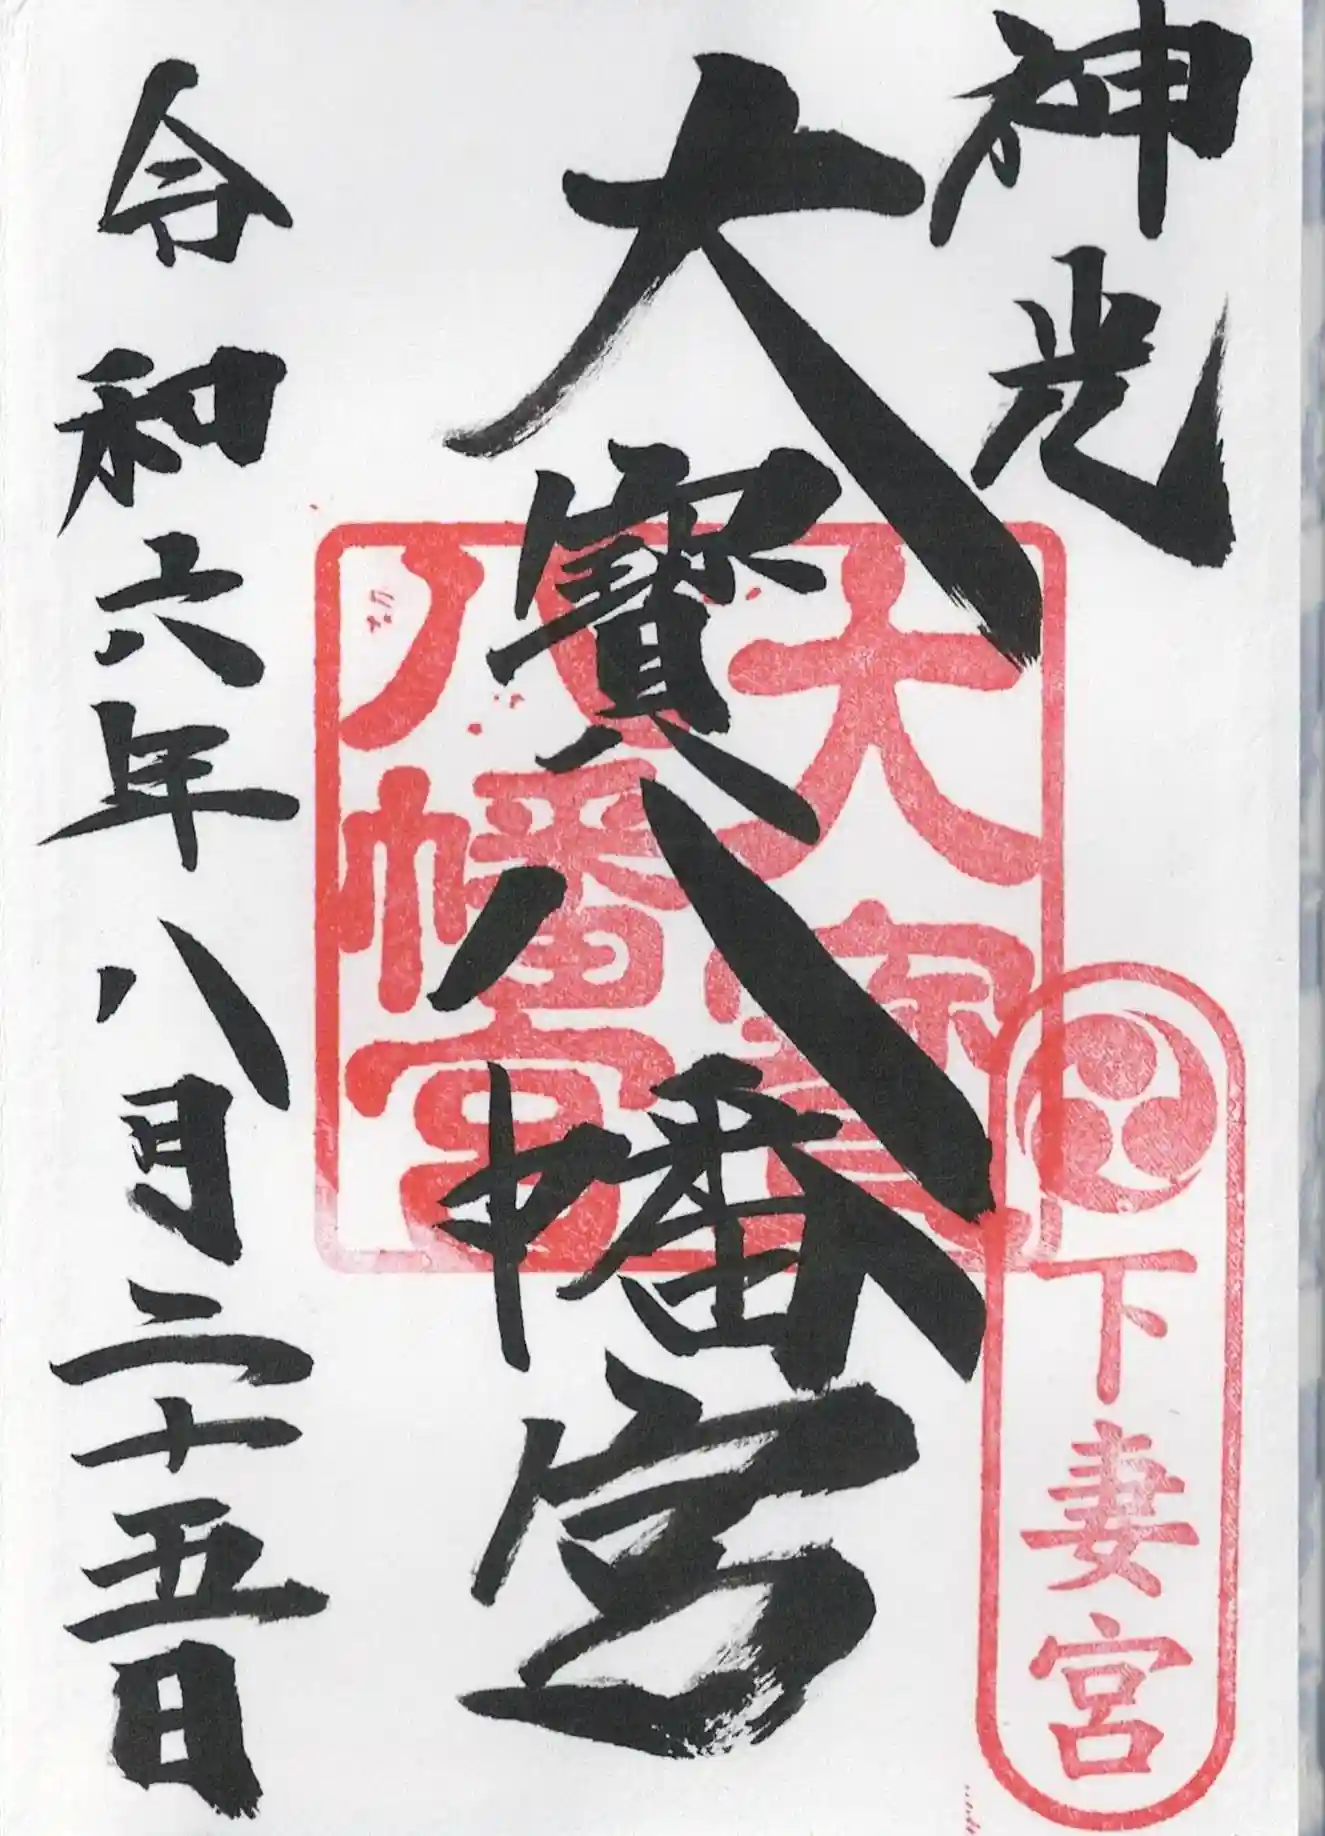 神光
下妻宮
大寳八幡宮
大寳
八幡宮
令和六年八月二十五日